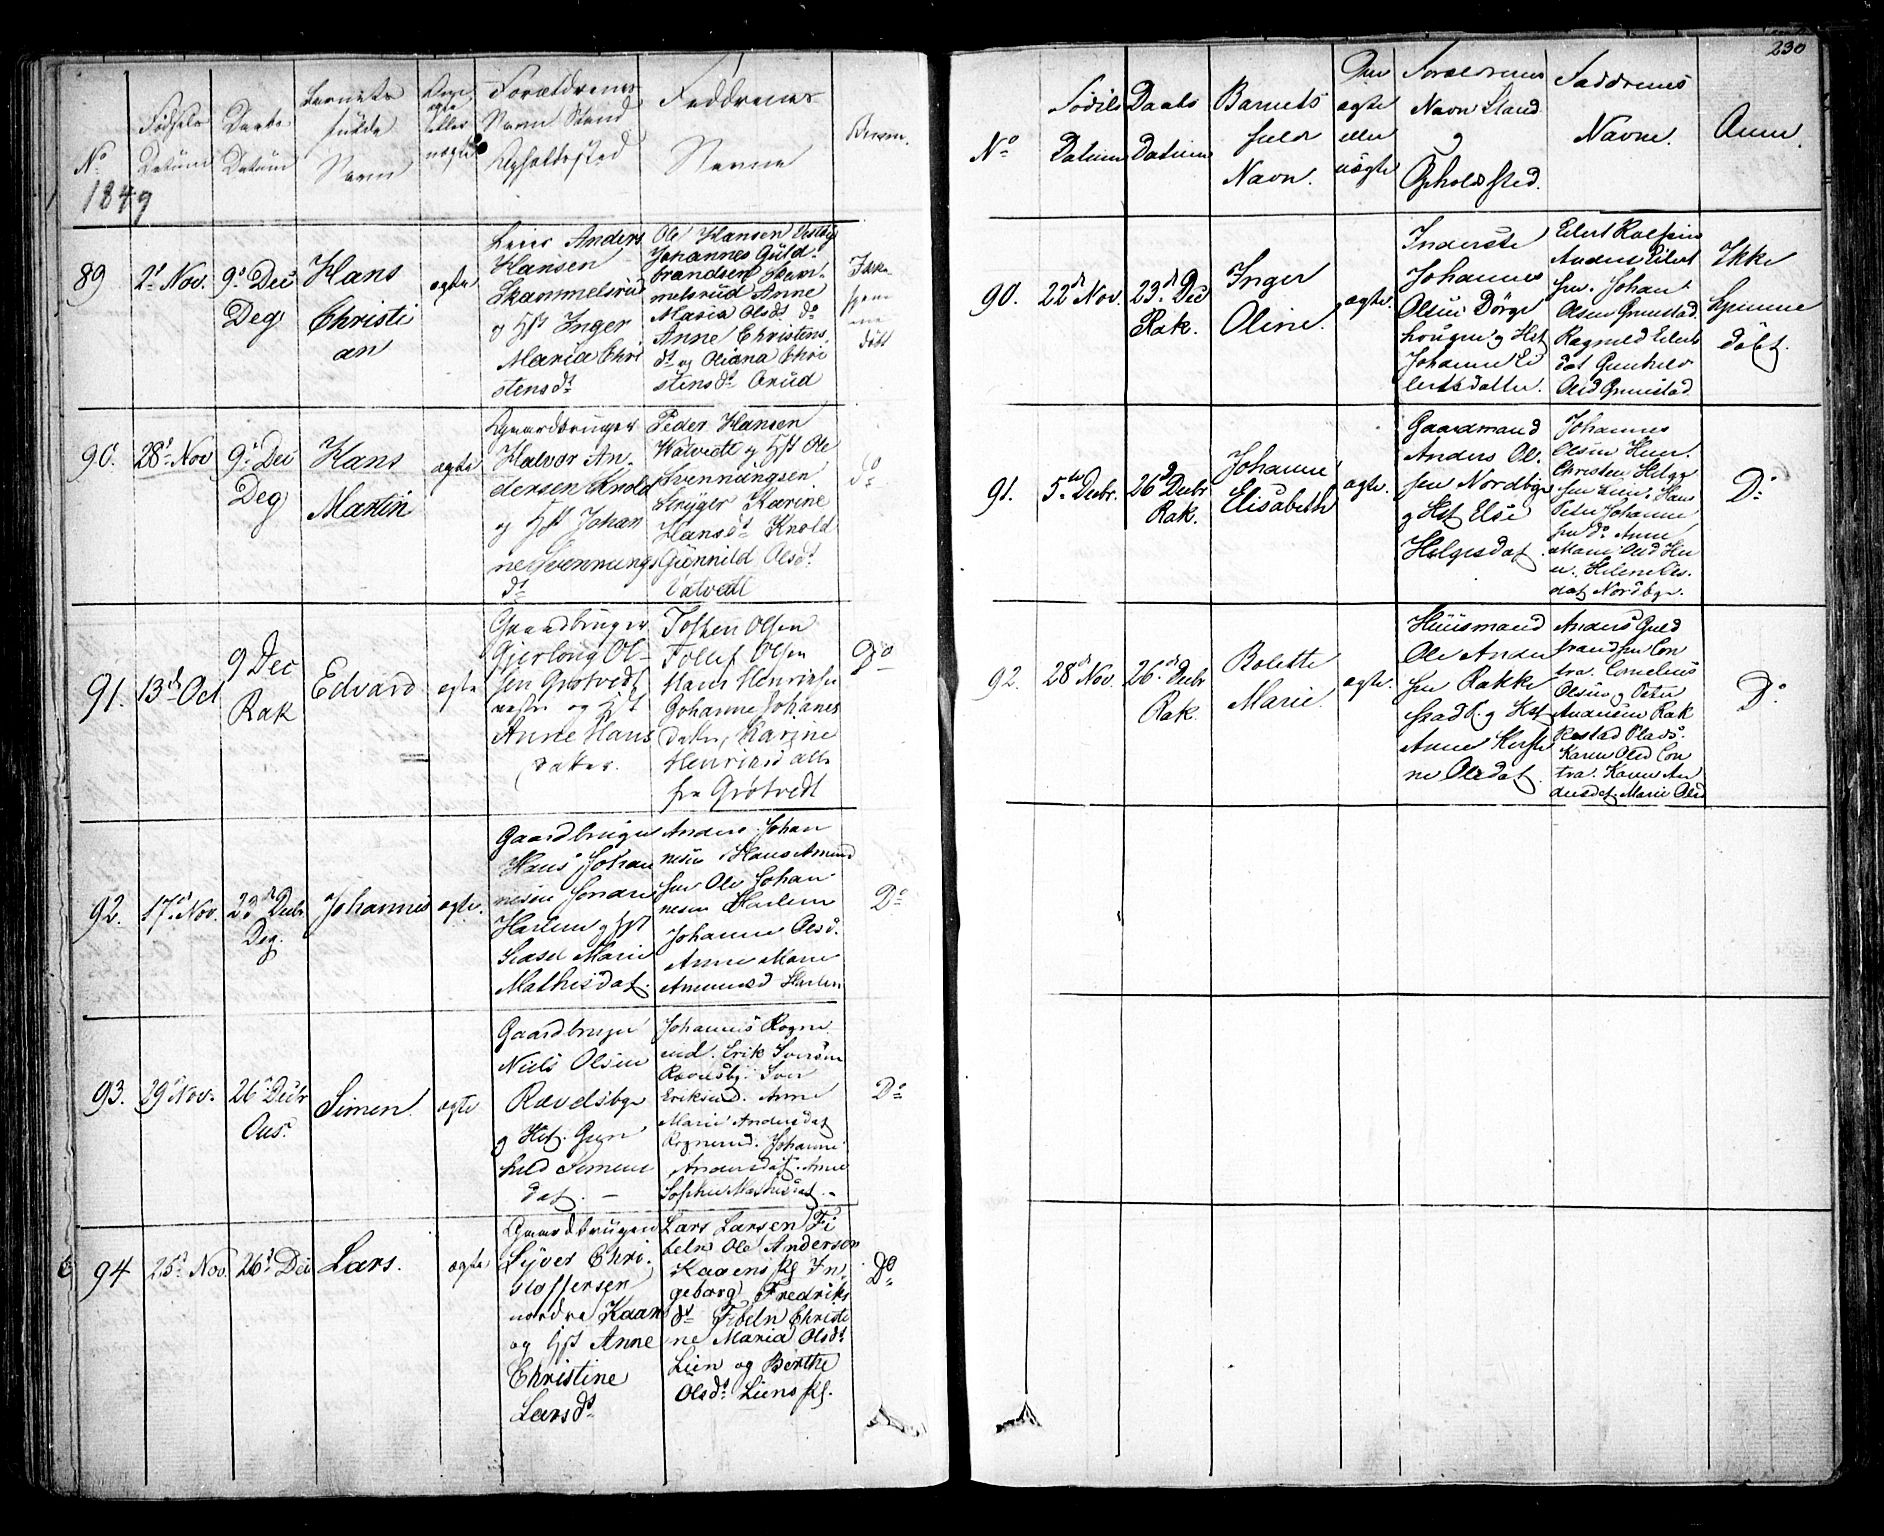 No
1849
Fødsels
Datum
Daabs
Datum
Barnets
fulde
Navn
ægte
eller
uægte
Forældrenes
Navn Stand
Opholdssted
Faddrenes
Navne
89
2d Nov.
9d Dec
Deg
Hans
Christi
an
ægte
Leier Anders
Hansen
Skammelsrud
og Hst Inger
Maria Chri
stensdt
Ole Hansen Vestby
Johannes Guld-
brandsen Skam-
melsrud Anne
Maria Olsdt do
Anne Christens
dt og Oliana Chri
stensdt Aarud
Ikke
hjem
me
døbt
90.
28d Nov
9d Dec
Deg
Hans
Martin
ægte
Gaardbruger
Halvor An-
dersen Knold
og Hst Johan
ne Svennungs
dt
Peder Hansen
Watvedt og Hst Ole
Svennungsen
Stryger Karine
Hansdt Knold
Gunnild Olsdt
Vatvedt
do
91.
13d Oct
9 Dec
Rak
Edvard
ægte
Gaardbruger
Gjerlaug Ol-
sen Grøtvedt
og Hst
Anne Hans
datter.
Tosten Olsen
Tollef Olsen
Hans Henriksen
Johanne Johannes
datter, Karine
Henriksd alle
fra Grøtvedt
Do
92.
17d Nov.
23d Decbr
Deg.
Johannes
ægte.
Gaardbruger
Hans Johan
nesen søndre
Harlem og Hst
Sidsel Marie
Mathisdat.
Anders Johan
nesen Hans Amund
sen Ole Johan
nesen Harlem
Johanne Olsd.
Anne Marie
Amundsd Harlem
Do
93.
29d Nov.
26d Decbr
Aas.
Simen.
ægte
Gaardbruger
Niels Olsen
Revelsbye
og Hst. Gun
hild Simens
dat.
Johannes Rogne
rud. Erik Sversen
Revelsby. Sver
Eriksrud. Anne
Marie Andersdat
Rognerud. Johanne
Andersdat. Anne
Sophie Mathisdat.
Do
94
25d Nov.
26d Dec
Lars.
ægte
Gaardbruger
Syver Chri-
stoffersen
nordre Kaan
og Hst Anne
Christine
Larsdt
Lars Larsen Fi
beln Ole Anderson
Kaaens Pl In-
geborg Fredriks
dt Fibeln Christi
ne Maria Olsdt
Lien og Berthe
Olsdt Liens Pl.
Do
230
No
Fødsels
Datum
Daabs
Datum
Barnets
fulde
Navn.
Om
ægte
eller
uægte
Forældrenes
Navn Stand
og
Opholdssted.
Faddrenes
Navne.
Anm.
90.
22d Nov.
23d Dec
Rak.
Inger
Oline.
ægte.
Inderste
Johannes
Olsen Dørge
hougen og Hst
Johanne Ei
lertsdatter.
Eilert
Anders Eilert
sen. Johan
Olsen Grimstad.
Ragnild Eilerts
dat Gunhild
Olsd Grimstad.
Ikke
hjemme
døbt.
91.
5te Decbr.
26d Decbr
Rak.
Johanne
Elisabeth
ægte.
Gaardmand
Anders Ol-
sen Nordbye
og Hst Else
Helgesdat
Johannes
Olsen Huer.
Christen Helge
sen Lien. Hans
Peter Johanne
sen do. Anne
Marie Olsd Hu
er. Helene Ols.
dat Nordbye.
Do
92.
28d Nov.
26d Decbr
Rak.
Bolette
Marie
ægte.
Huusmand
Ole Ander
sen Rakke
stad P. og Hst
Anne Kirsti
ne Olsdat.
Anders Guld
brandsen Con
tra. Cornelius
Olsen og Peter
Andersen Rak
kestad Plads.
Karen Olsd Con
tra. Karen An
dersdat. Marie Olsd
Do